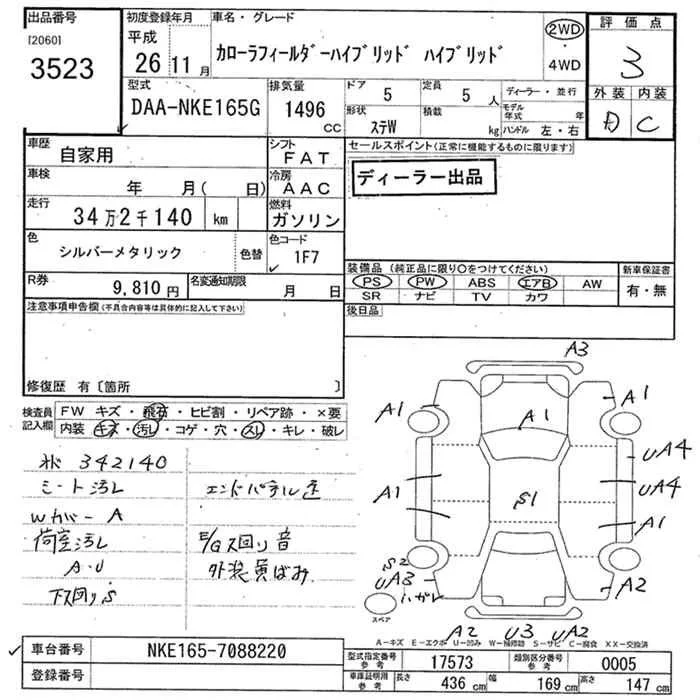 出品番号
[2060]
3523
初度登録年月
平成
26 11月
車名・グレード
カローラフィールダーハイブリッド ハイブリッド
2WD
・
4WD
評価点
3
外装 内装
D C
型式
DAA-NKE165G
排気量
1496
CC
ドア
5
定員
5 人
形状
ステW
積載
kg
ディーラー・並行
モデル年式 年
ハンドル 左・右
車歴
自家用
シフト
FAT
車検
年 月( 日)
冷房
AAC
走行
34万2千140 km
燃料
ガソリン
色
シルバーメタリック
色替
色コード
1F7
R券
9,810 円
名変通知期限
月 日
セールスポイント(正常に機能するものに限ります)
ディーラー出品
装備品(純正品に限り○をつけてください)
PS PW ABS エアB AW
SR ナビ TV カワ
新車保証書
有・無
後日品
注意事項申告欄(不具合内容等は具体的に記入して下さい)
修復歴 有〔箇所 〕
検査員
記入欄
FW キズ・飛石・ヒビ割・リペア跡・×要
内装 キズ・汚レ・コゲ・穴・スレ・キレ・破レ
342140
シート汚レ
エンドパネル
Wカバー A
荷室汚レ
E/Gス回り音
A・U
外装員ばみ
下ス回りS
A3
A1
A1
A1
UA4
UA4
A1
S1
A1
S2
UA3
ハガレ
A2
スペア
A2 U3 UA2
A-キズ E-エクボ U-凹み W-補修跡 S-サビ C-腐食 XX-交換済
車台番号
NKE165-7088220
登録番号
型式指定番号
参考
17573
類別区分番号
参考
0005
車庫証明用
参考
長さ
436 cm
幅
169 cm
高さ
147 cm